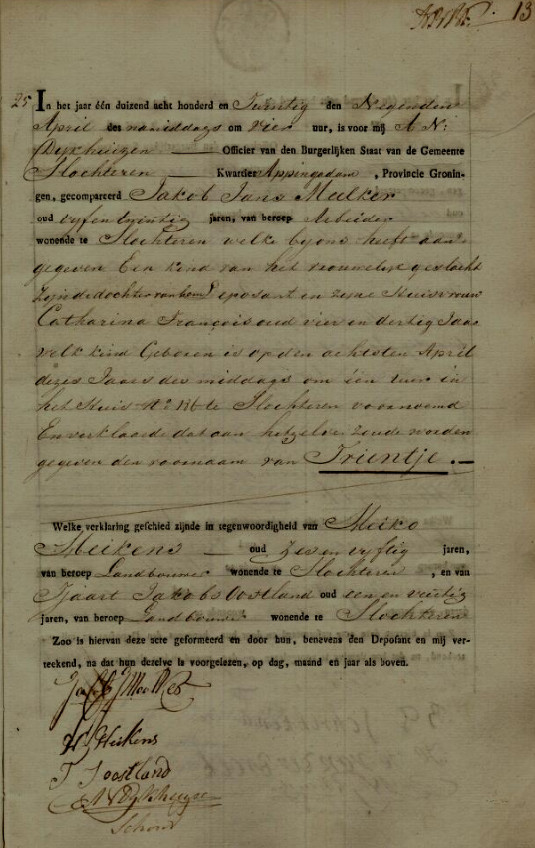 13
25 In het jaar één duizend acht honderd en Twintig den Negenden
April des namiddags om vier uur, is voor mij A N:
Dijkhuizen Officier van den Burgerlijken Staat van de Gemeente
Slochteren Kwartier Appingedam, Provincie Gronin-
gen, gecompareerd Jakob Jans Mulker
oud vyfentwintig jaren, van beroep Arbeider
wonende te Slochteren welke by ons heeft aan-
gegeven Een kind van het vrouwelyk geslacht
zynde dochter van hem Deposant en zyne Huisvrouw
Catharina Francois oud vier en dertig Jaar
welk kind Geboren is op den achtsten April
dezes Jaars des middags om één uur in
het Huis No 136 te Slochteren voornoemd
En verklaarde dat aan hetzelve zoude worden
gegeven den voornaam van Trientje.
Welke verklaring geschied zijnde in tegenwoordigheid van Meiko
Heikens oud zes en vyftig jaren,
van beroep Landbouwer wonende te Slochteren, en van
Tjaart Jakobs Oostland oud een en veertig
jaren, van beroep Landbouwer wonende te Slochteren
Zoo is hiervan deze acte geformeerd en door hun, benevens den Deposant en mij ver-
teekend, na dat hun dezelve is voorgelezen, op dag, maand en jaar als boven.
Jakob J Molker
H Heikens
T J oostland
A N Dijkhuizen